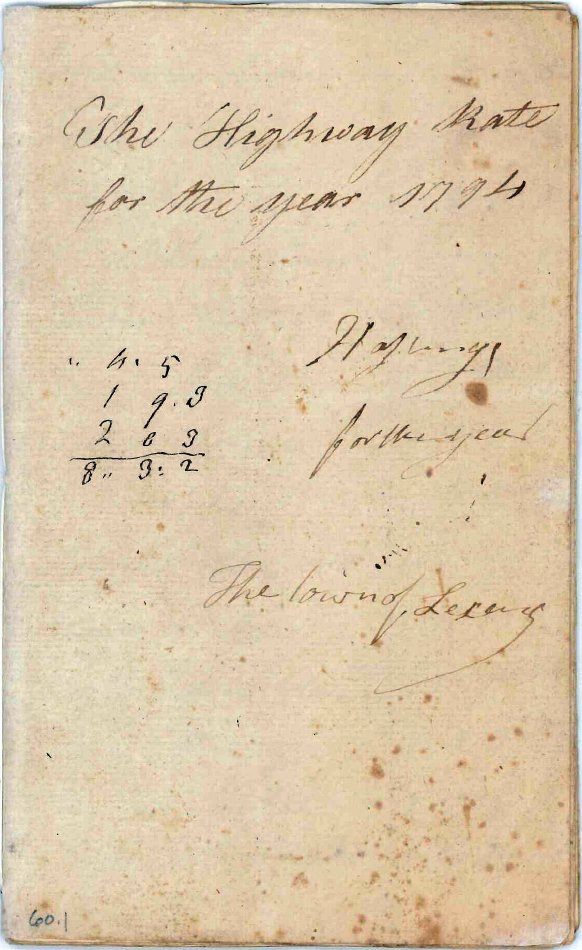 The Highway Rate
for the year 1794
" 4. 5
1 9. 3
2 8 9
8 .. 3 : 2
Hastings
for the year
The town of Lexeng
60.1